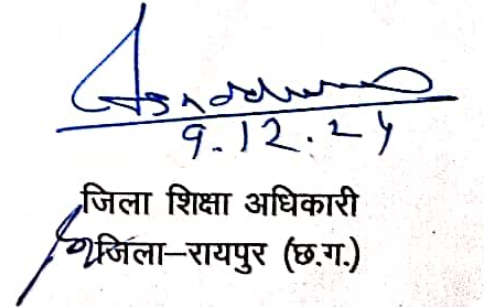 9.12.24
जिला शिक्षा अधिकारी
जिला–रायपुर (छ.ग.)